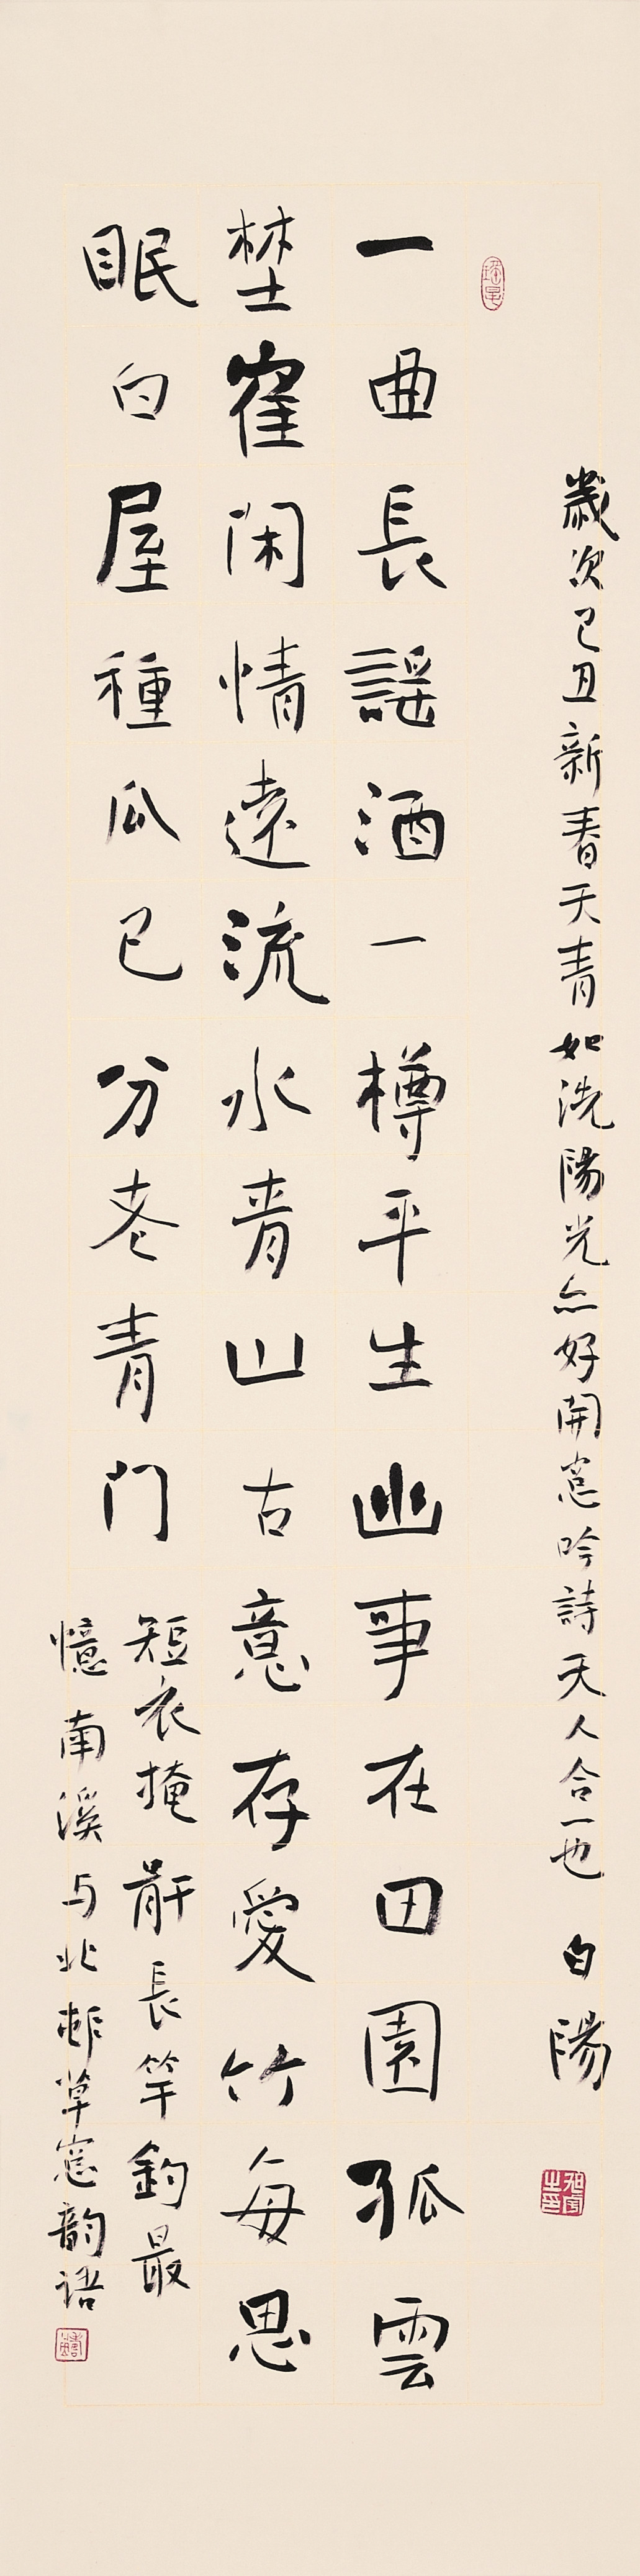 歲次己丑新春天青如洗陽光亦好開窓吟詩天人合一也 白陽
一曲長謠酒一樽平生幽事在田園孤雲
埜崔閑情遠流水青山古意存愛竹每思
眠白屋種瓜已分老青門
短衣掩骭長竿釣最
憶南溪与北邨草窓韵语